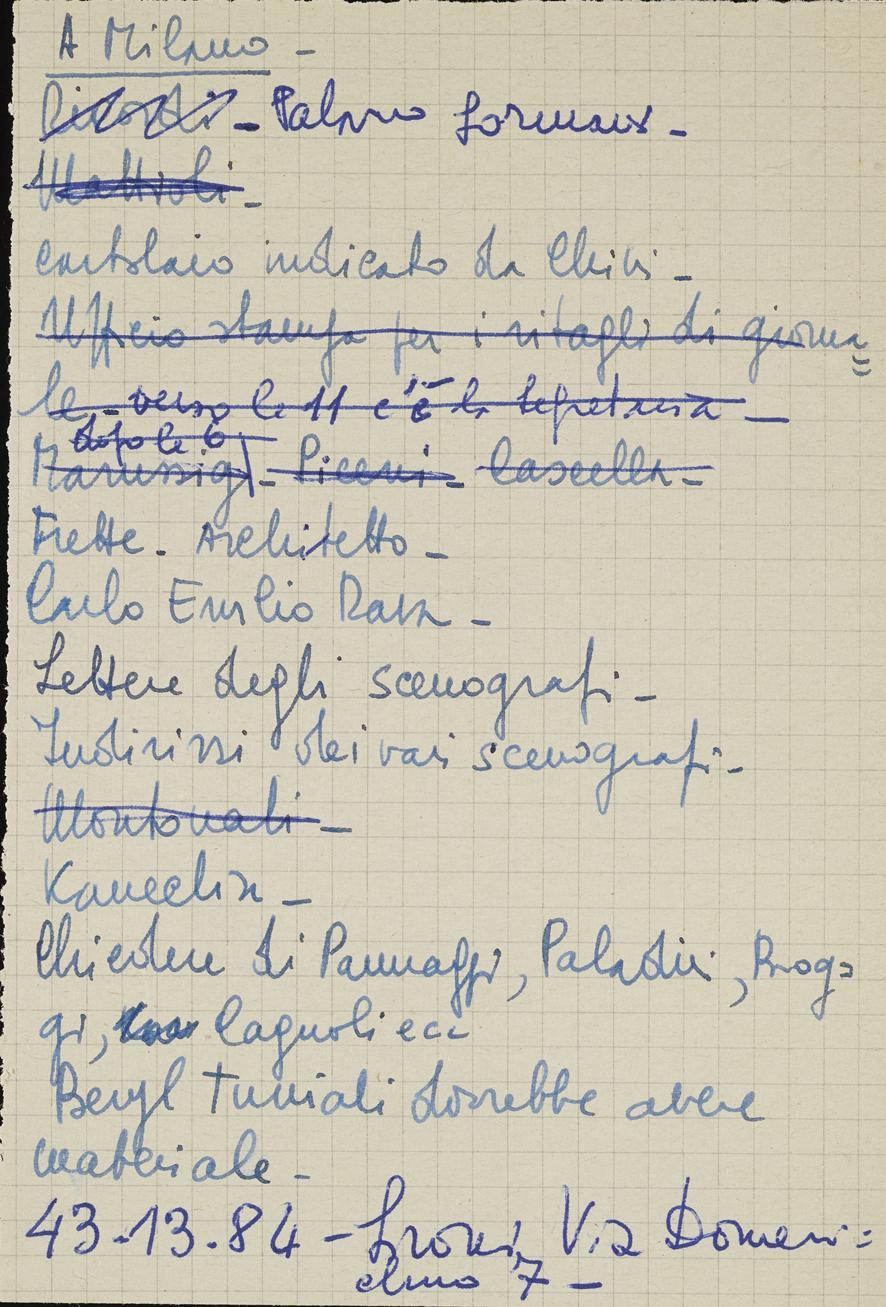 A Milano -
Ricordi - Palazzo Sormani -
Mattioli -
cartolaio indicato da Ghiri -
Ufficio stampa per i ritagli di giorna=
le - verso le 11 c'è la segretaria -
dopo le 6
Marussig - Piceni - Cascella -
Frette. Architetto -
Carlo Emilio Rava -
Lettere degli scenografi -
Indirizzi dei vari scenografi -
Montonati -
Kaneclin -
Chiedere di Pannaggi, Paladini, Brog=
gi, Cagnoli ecc
Beryl Tumiati dovrebbe avere
materiale -
43.13.84 - Sironi, Via Domeni=
chino 7 -